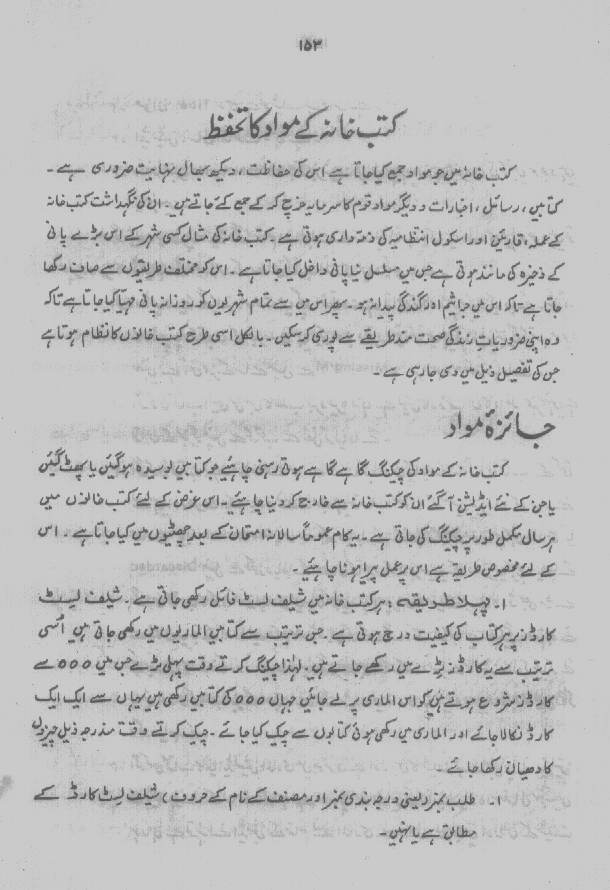 ۱۵۳
کتب خانہ کے مواد کا تحفظ
کتب خانہ میں جو مواد جمع کیا جاتا ہے اس کی حفاظت، دیکھ بھال نہایت ضروری ہے۔
کتابیں، رسائل، اخبارات و دیگر مواد قوم کا سرمایہ خرچ کر کے جمع کئے جاتے ہیں۔ ان کی نگہداشت کتب خانہ
کے عملہ، قارئین اور اسکول انتظامیہ کی ذمّہ داری ہوتی ہے۔ کتب خانہ کی مثال کسی شہر کے اس بڑے پانی
کے ذخیرہ کی مانند ہوتی ہے جس میں مسلسل نیا پانی داخل کیا جاتا ہے۔ اس کو مختلف طریقوں سے صاف رکھا
جاتا ہے تاکہ اس میں جراثیم اور گندگی پیدا نہ ہو۔ پھر اس میں سے تمام شہریوں کو روزانہ پانی مہیا کیا جاتا ہے تاکہ
وہ اپنی ضروریاتِ زندگی صحت مند طریقے سے پوری کر سکیں۔ بالکل اسی طرح کتب خانوں کا نظام ہوتا ہے
جس کی تفصیل ذیل میں دی جا رہی ہے۔
جائزۂ مواد
کتب خانہ کے مواد کی چیکنگ گاہے گاہے ہوتی رہنی چاہئیے جو کتابیں بوسیدہ ہو گئیں یا پھٹ گئیں
یا جن کے نئے ایڈیشن آ گئے ان کو کتب خانہ سے خارج کر دینا چاہئیے۔ اس غرض کے لئے کتب خانوں میں
ہر سال مکمل طور پر چیکنگ کی جاتی ہے۔ یہ کام عموماً سالانہ امتحان کے بعد چھٹیوں میں کیا جاتا ہے۔ اس
کے لئے مخصوص طریقے ہے اس پر عمل پیرا ہونا چاہئیے۔
۱۔ پہلا طریقہ: ہر کتب خانہ میں شیلف لسٹ فائل رکھی جاتی ہے۔ شیلف لسٹ
کارڈز پر ہر کتاب کی کیفیت درج ہوتی ہے۔ جس ترتیب سے کتابیں الماریوں میں رکھی جاتی ہیں اُسی
ترتیب سے یہ کارڈز ٹرے میں رکھے جاتے ہیں۔ لہٰذا چیکنگ کرتے وقت پہلی ٹرے جس میں ۰۰۰ سے
کارڈز شروع ہوتے ہیں کو اس الماری پر لے جائیں جہاں ۰۰۰ کی کتابیں رکھی ہیں یہاں سے ایک ایک
کارڈ نکالا جائے اور الماری میں رکھی ہوئی کتابوں سے چیک کیا جائے۔ چیک کرتے وقت مندرجہ ذیل چیزوں
کا دھیان رکھا جائے۔
۱۔ طلب نمبر (یعنی درجہ بندی نمبر اور مصنف کے نام کے حروف) شیلف لسٹ کارڈ کے
مطابق ہے یا نہیں۔